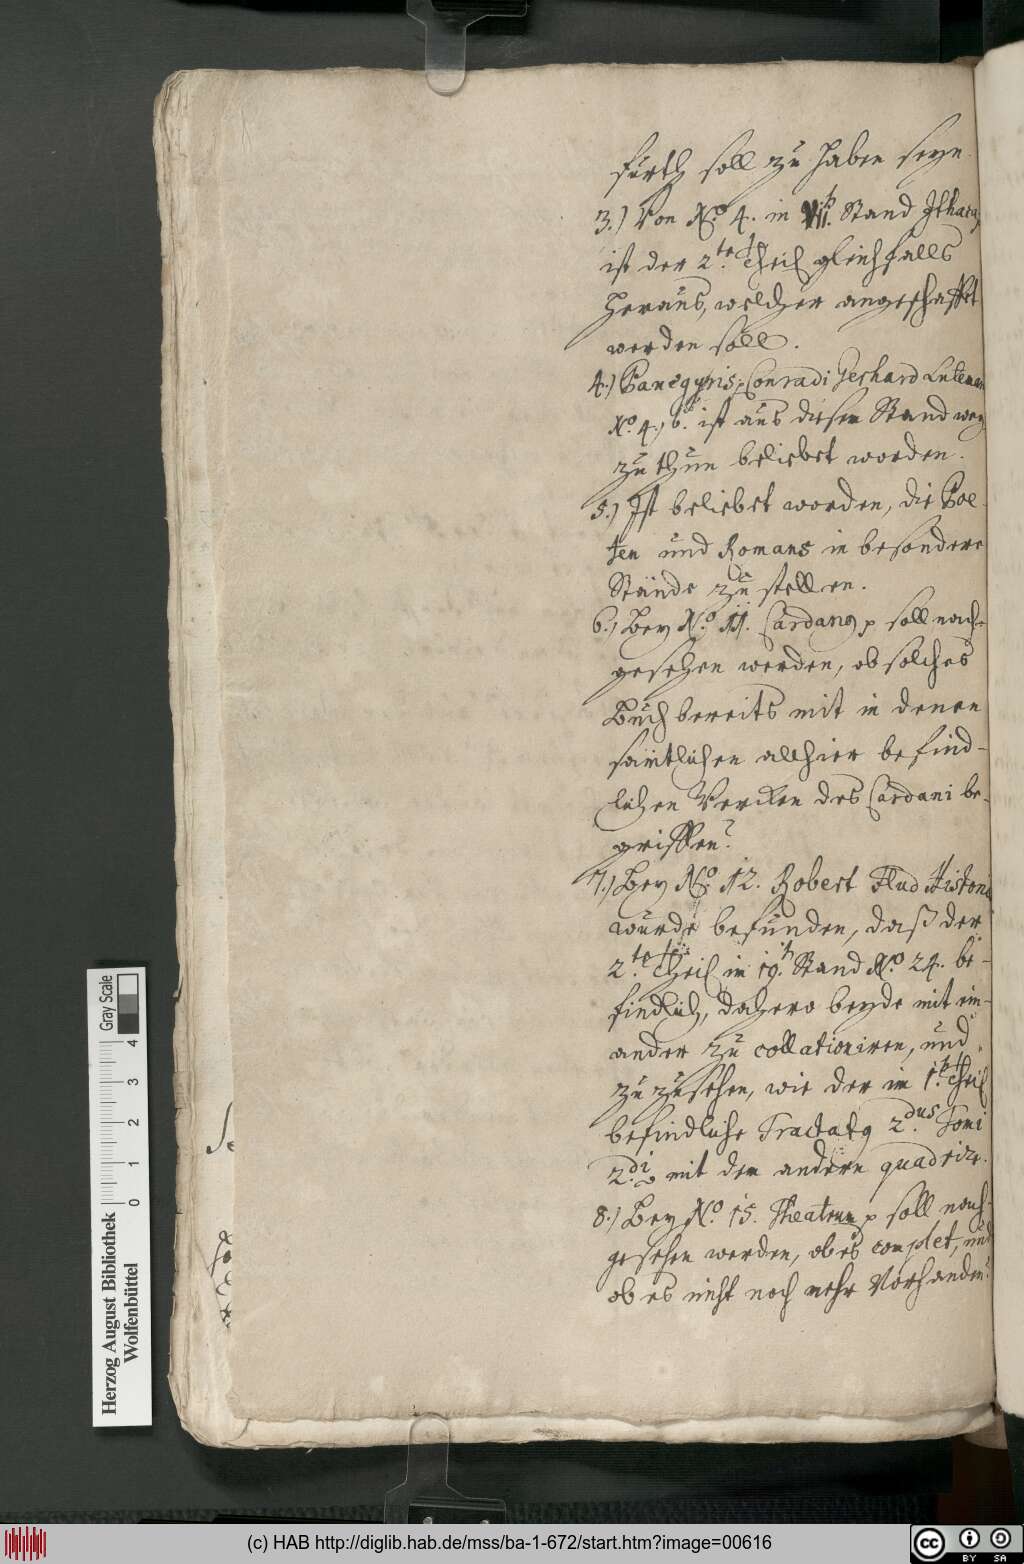 furth soll zu haben seyn.
3.) Von No. 4. in VII.h Stand
ist der 2.te Theil gleichfalls
heraus, welcher angeschafft
werden soll.
4.) Panegyris Conradi Gerhard
No. 4, 6. ist aus diesem Stand weg
zu thun beliebet worden.
5.) Ist beliebet worden, die Poe-
ten und Romans in besondere
Stände zu stellen.
6.) Bey No. 11. Cardang p soll nach-
gesehen werden, ob solches
Buch bereits mit in denen
samtlichen allhier befind-
lichen Wercken des Cardani be-
griffen?
7.) Bey No. 12. Robert Flud Histori
wurde befunden, daß der
2.te Theil im 19.h Stand No. 24. be-
findlich, dahero beyde mit ein-
ander zu collationiren, und
zuzusehen, wie der im 1.h Theil
befindliche Tractatg 2.dus Tomi
2.di mit dem andern quadrire.
8.) Bey No. 15. Theatrum p soll nach-
gesehen werden, ob es complet, und
ob es nicht noch mehr vorhanden?
Gray Scale
0 1 2 3 4
Herzog August Bibliothek
Wolfenbüttel
(c) HAB http://diglib.hab.de/mss/ba-1-672/start.htm?image=00616
cc BY SA